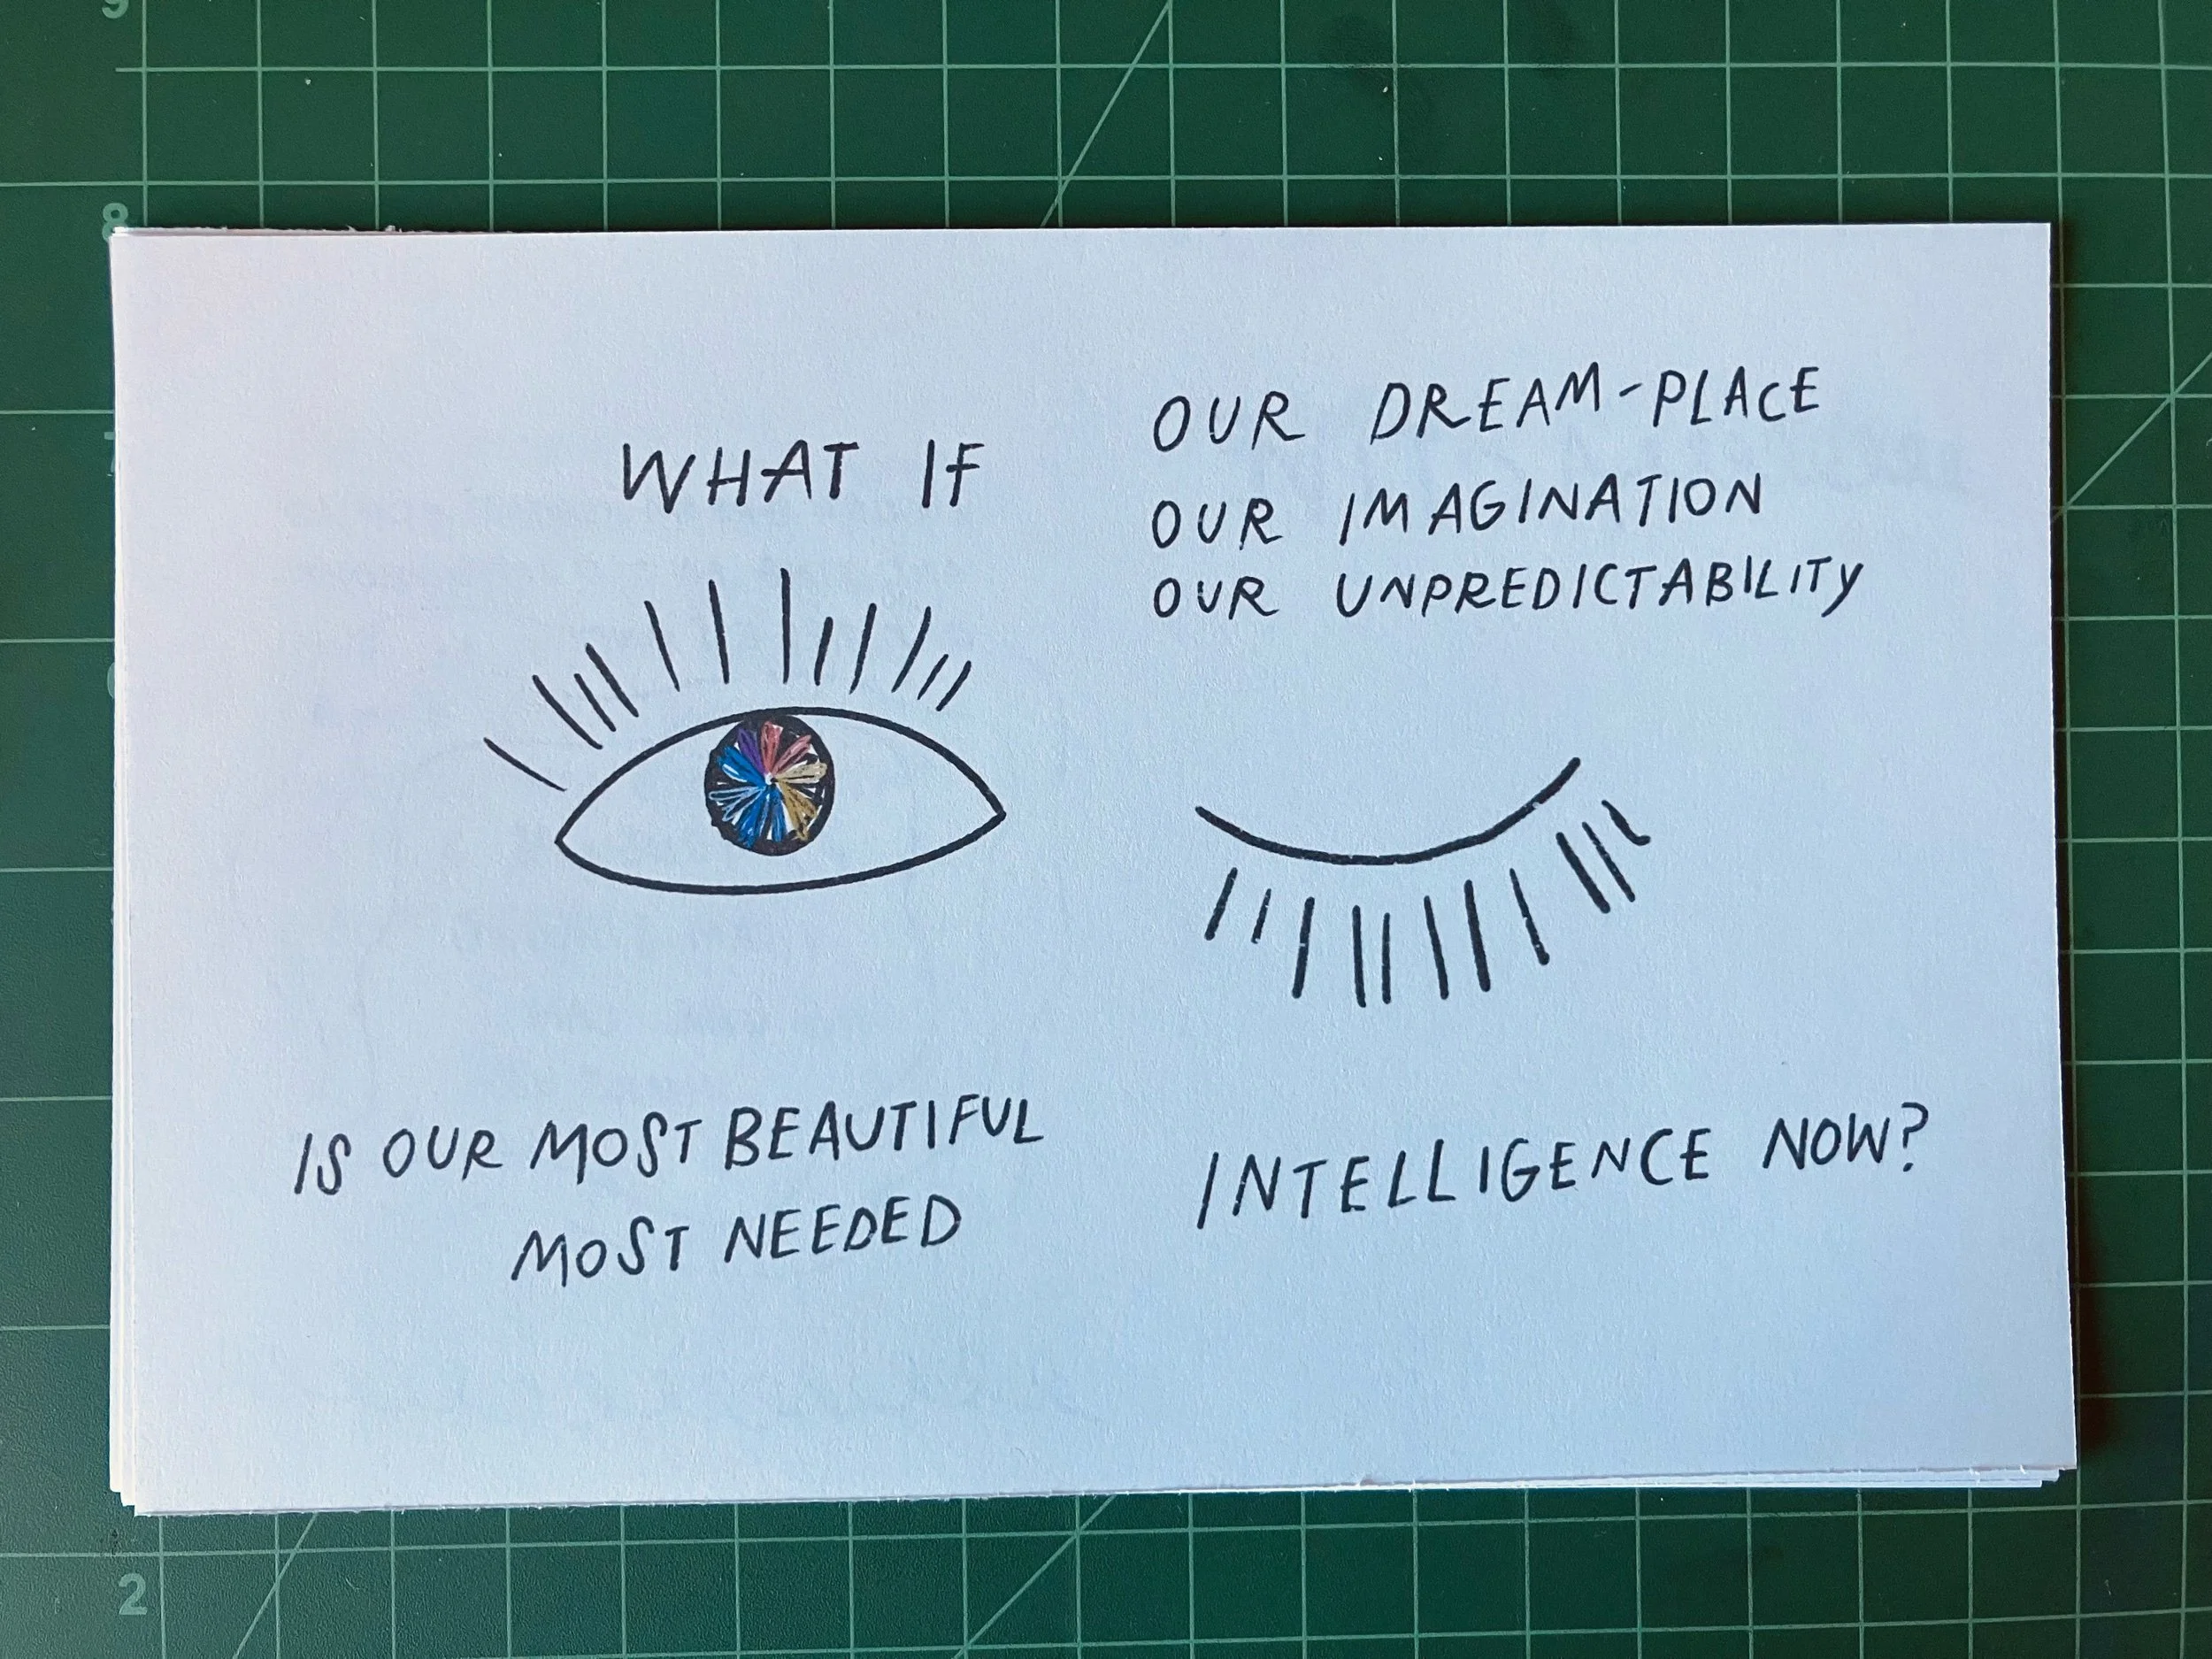 WHAT IF
OUR DREAM-PLACE
OUR IMAGINATION
OUR UNPREDICTABILITY
IS OUR MOST BEAUTIFUL
MOST NEEDED
INTELLIGENCE NOW?
8
2